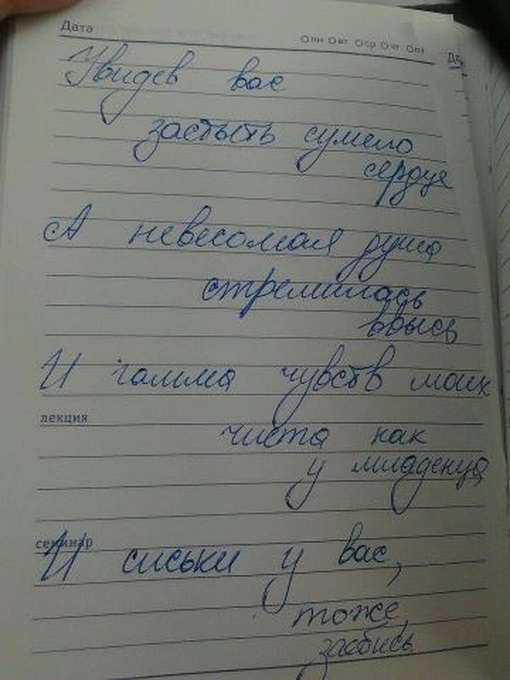 Дата
Опн Овт Оср Очт Опт
Увидев вас
застыть сумело
сердце
А невесомая душа
стремилась
ввысь
И гамма чувств моих
лекция
чиста как
у младенца
семинар
И сиськи у вас,
тоже,
заебись